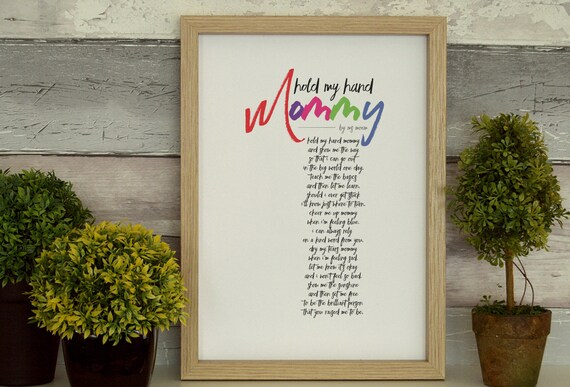 hold my hand
Mommy
by ms moem
hold my hand mommy
and show me the way
so that i can go out
in the big world one day.
teach me the basics
and then let me learn,
should i ever get stuck
i'll know just where to turn.
cheer me up mommy
when i'm feeling blue.
i can always rely
on a kind word from you.
dry my tears mommy
when i'm feeling sad.
let me know it's okay
and i won't feel so bad.
show me the sunshine
and then set me free
to be the brilliant person
that you raised me to be.